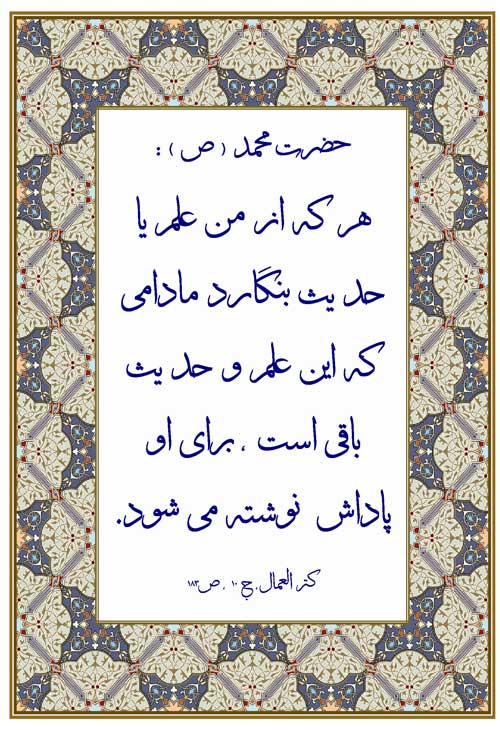 حضرت محمد ( ص ) :
هر که از من علم یا
حدیث بنگارد مادامی
که این علم و حدیث
باقی است ، برای او
پاداش نوشته می شود.
کنز العمال، ج ۱۰ ، ص۱۸۳